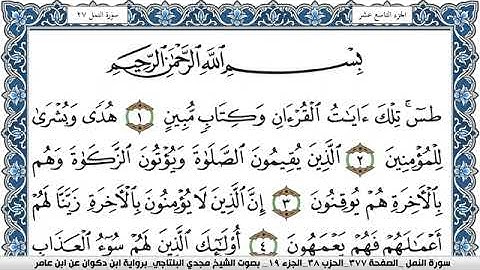 الجزء التاسع عشر
سورة النمل ٢٧
بِسْمِ اللَّهِ الرَّحْمَٰنِ الرَّحِيمِ
طسٓ ۚ تِلْكَ ءَايَٰتُ الْقُرْءَانِ وَكِتَابٍ مُّبِينٍ ١ هُدًى وَبُشْرَىٰ
لِلْمُؤْمِنِينَ ٢ الَّذِينَ يُقِيمُونَ الصَّلَوٰةَ وَيُؤْتُونَ الزَّكَوٰةَ وَهُم
بِالْأَخِرَةِ هُمْ يُوقِنُونَ ٣ إِنَّ الَّذِينَ لَا يُؤْمِنُونَ بِالْأَخِرَةِ زَيَّنَّا لَهُمْ
أَعْمَٰلَهُمْ فَهُمْ يَعْمَهُونَ ٤ أُوْلَٰٓئِكَ الَّذِينَ لَهُمْ سُوٓءُ الْعَذَابِ
سورة النمل _الصفحة ٣٧٧_ الحزب ٣٨_ الجزء ١٩ _ بصوت الشيخ مجدي البلتاجي_برواية ابن ذكوان عن ابن عامر